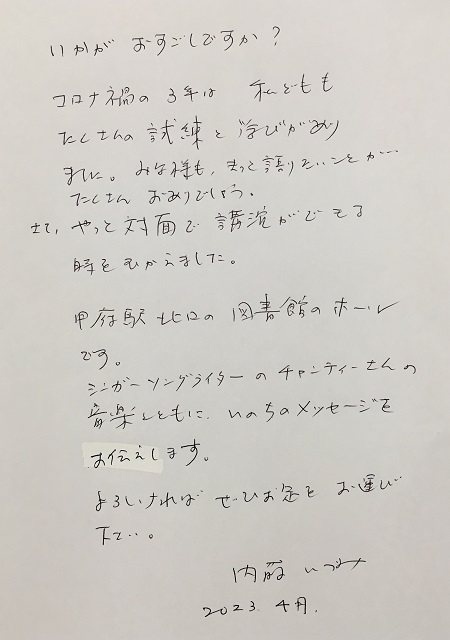 いかが おすごしですか?
コロナ禍の 3年は 私どもも
たくさんの 試練と 学びがあり
ました。みな様も、もっと語りたいことが…
たくさん おありでしょう。
さて、やっと対面で 講演ができる
時をむかえました。
甲府駅 北口の 図書館のホール
です。
シンガーソングライターの チャンティーさんの
音楽とともに、いのちのメッセージを
お伝えします。
よろしければ ぜひお足を お運び
下さい。
内藤 いづみ
2023. 4月.